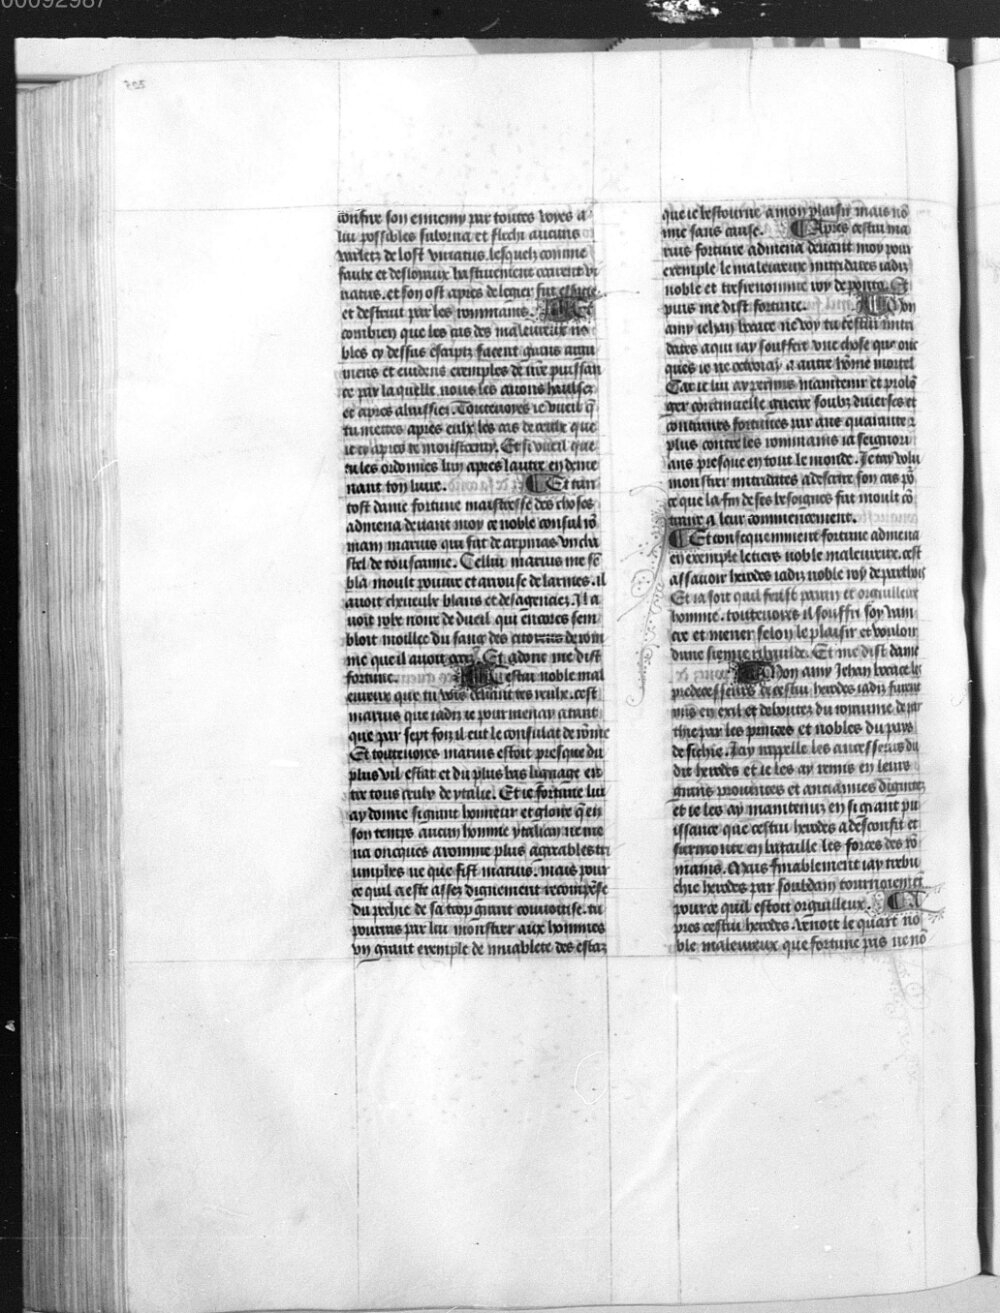 00092987
contre son ennemy par toutes voyes a
luy possibles suborna et flechi aucuns
varletz de lost viriatus. lesquelz comme
faulx et desloyaux hastivement
natus. et son ost apres de legier fut
et destruit par les rommains. Et
combien que les cas des maleureux no
bles cy dessus escriptz facent grans argu
mens et evidens exemples de nr̃e puissan
ce par laquelle nous les avons haulsez
et apres abaissiez. Toutevoyes ie vueil q̃
tu mettes apres eulx les cas de ceulx que
ie cy apres te monstreray. Et si vueil que
tu les ordonnes lun apres lautre en deme
nant ton livre. Et tan
tost dame fortune maistresse des choses
admena devant moy ce noble consul rõ
main marius qui fut de arpinas un cha
stel de touscanne. Cellui marius me sẽ
bla moult povure et arrouse de larmes. il
avoit cheveulx blans et desagenciez. Il a
voit robe noire de dueil qui encores sem
bloit moillee du sang des citoyens de rom
me que il avoit Et adonc me dist
fortune. cestui noble mal
eureux que tu vois devant tes yeulx. cest
marius que iadiz ie pourmenay atant
que par sept foiz il eut le consulat de rõme
Et toutevoyes marius estoit presque du
plus vil estat et du plus bas lignage en
tre tous ceulx de ytalie. Et ie fortune lui
ay donne si grant honneur et gloire q̃ en
son temps aucun homme ytalien ne me
na oncques a romme plus agreables tri
umphes ne que fist marius. mais pour
ce quil a este assez dignement recompẽse
du pechie de sa trop grant convoitise. tu
pourras par lui monstrer aux hommes
un grant exemple de muablete des estaz
que ie bestourne a mon plaisir mais nõ
mie sans cause. Apres cestui ma
rius fortune admena devant moy pour
exemple le maleureux mitridates iadiz
noble et tresrenomme roy de ponto. Et
puis me dist fortune. Mon
amy iehan bocace ne voy tu cestui mitri
dates a qui iay souffert une chose que onc
ques ie ne octroyay a autre hõme mortel
Car ie lui ay permis maintenir et prolõ
ger continuelle guerre soubz diverses et
contraires fortunes par ans quarante et
plus contre les rommains ia seignori
ans presque en tout le monde. Ie tay volu
monstrer mitridates a descrire son cas põ
ce que la fin de ses besoignes fut moult cõ
traire a leur commencement.
Et consequemment fortune admena
en exemple le tiers noble maleureux. cest
assavoir herodes iadiz noble roy de parthois
Et ia soit quil feust parin et orguilleux
homme. toutevoyes il souffri soy vain
cre et mener selon le plaisir et vouloir
dune sienne ribaulde. Et me dist dame
Mon amy Jehan bocace les
predecesseurs de cestui herodes iadiz furent
mis en exil et deboutez du royaume de par
thie par les princes et nobles du pays
de sichie. Iay rappelle les ancesseurs du
dit herodes et ie les ay remis en leurs
grans provinces et anciannes dignitez
et ie les ay maintenuz en si grant pu
issance que cestui herodes a desconfit et
surmonte en bataille les forces des rõ
mains. Mais finablement iay trebu
chie herodes par souldain tournoiement
pource quil estoit orguilleux. A
pres cestui herodes. venoit le quart no
ble maleureux que fortune pas ne nõ